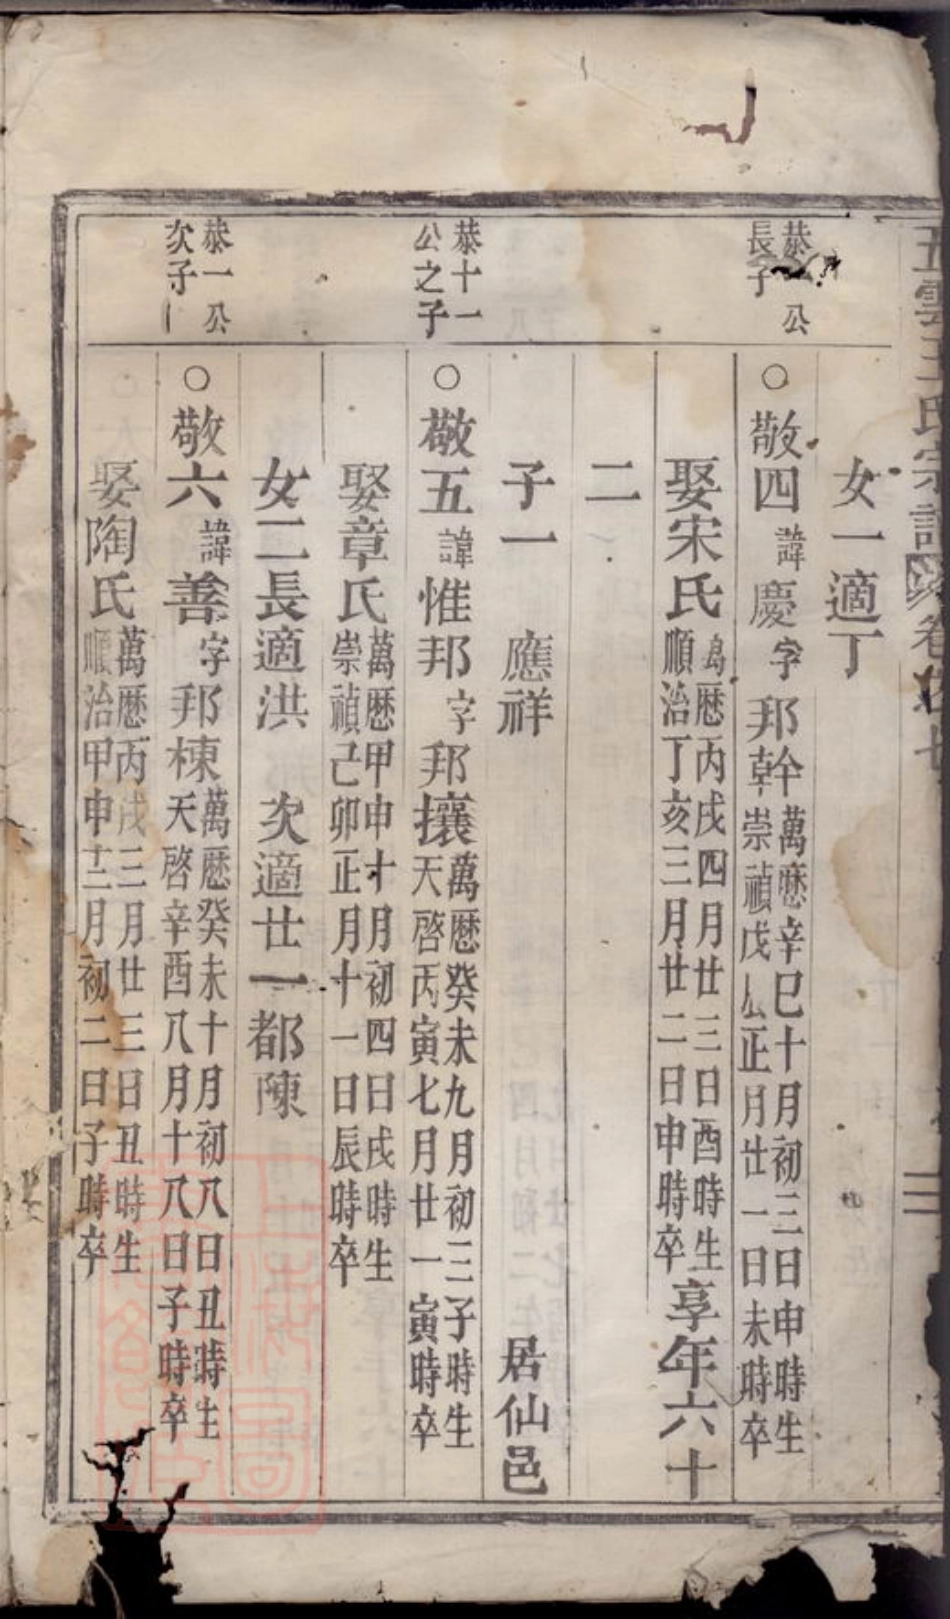 五雲王氏宗譜 卷
女一適丁
恭一公
長子
○敬四諱慶字邦幹萬厯辛巳十月初三日申時生
崇禎戊辰正月廿一日未時卒
娶宋氏萬厯丙戌四月廿三日酉時生
順治丁亥三月廿二日申時卒享年六十
二
子一 應祥 居仙邑
恭十一
公之子
○敬五諱惟邦字邦攘萬厯癸未九月初三子時生
天啓丙寅七月廿一寅時卒
娶章氏萬厯甲申十月初四日戌時生
崇禎己卯正月十一日辰時卒
女二長適洪 次適廿一都陳
恭一公
次子
○敬六諱善字邦棟萬厯癸未十月初八日丑時生
天啓辛酉八月十八日子時卒
娶陶氏萬厯丙戌三月廿三日丑時生
順治甲申十二月初二日子時卒